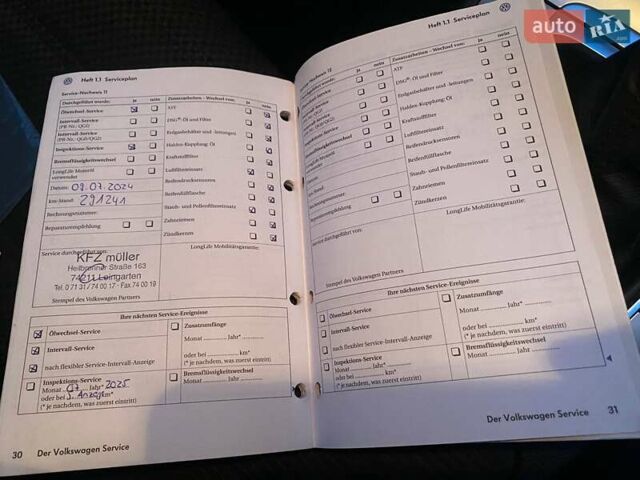 Heft 1.1 Serviceplan
Service-Nachweis 11
Durchgeführt wurde: ja nein
Ölwechsel-Service
Intervall-Service
Intervall-Service
Inspektions-Service
Bremsflüssigkeitswechsel
LongLife Material
verwendet
Datum: 09.07.2024
km-Stand: 291241
Rechnungsnummer:
Reparaturempfehlung
Zusatzarbeiten - Wechsel von: ja nein
ATF
DSG®-Öl und Filter
Erdgasbehälter und -leitungen
Haldex-Kupplung: Öl
Kraftstofffilter
Luftfiltereinsatz
Reifendrucksensoren
Reifenfüllflasche
Staub- und Pollenfiltereinsatz
Zahnriemen
Zündkerzen
Service durchgeführt von:
LongLife Mobilitätsgarantie:
KFZ müller
Heilbronner Straße 163
74211 Leingarten
Tel. 0 71 31 / 74 00 17 - Fax 74 00 19
Stempel des Volkswagen Partners
Ihre nächsten Service-Ereignisse
Ölwechsel-Service
Intervall-Service
nach flexibler Service-Intervall-Anzeige
Inspektions-Service
Monat 07 Jahr* 2025
oder bei km*
(* je nachdem, was zuerst eintritt)
Zusatzumfänge
Monat Jahr*
oder bei km*
(* je nachdem, was zuerst eintritt)
Bremsflüssigkeitswechsel
Monat Jahr
30 Der Volkswagen Service
Heft 1.1 Serviceplan
Service-Nachweis 12
ja nein
Zusatzarbeiten - Wechsel von: ja nein
ATF
DSG®-Öl und Filter
Erdgasbehälter und -leitungen
Haldex-Kupplung: Öl
Kraftstofffilter
Luftfiltereinsatz
Reifendrucksensoren
Reifenfüllflasche
Staub- und Pollenfiltereinsatz
Zahnriemen
Zündkerzen
LongLife Mobilitätsgarantie:
Stempel des Volkswagen Partners
Ihre nächsten Service-Ereignisse
Ölwechsel-Service
Intervall-Service
nach flexibler Service-Intervall-Anzeige
Inspektions-Service
Monat Jahr*
oder bei km*
(* je nachdem, was zuerst eintritt)
Zusatzumfänge
Monat Jahr*
oder bei km*
(* je nachdem, was zuerst eintritt)
Bremsflüssigkeitswechsel
Monat Jahr
Der Volkswagen Service 31
auto RIA.com